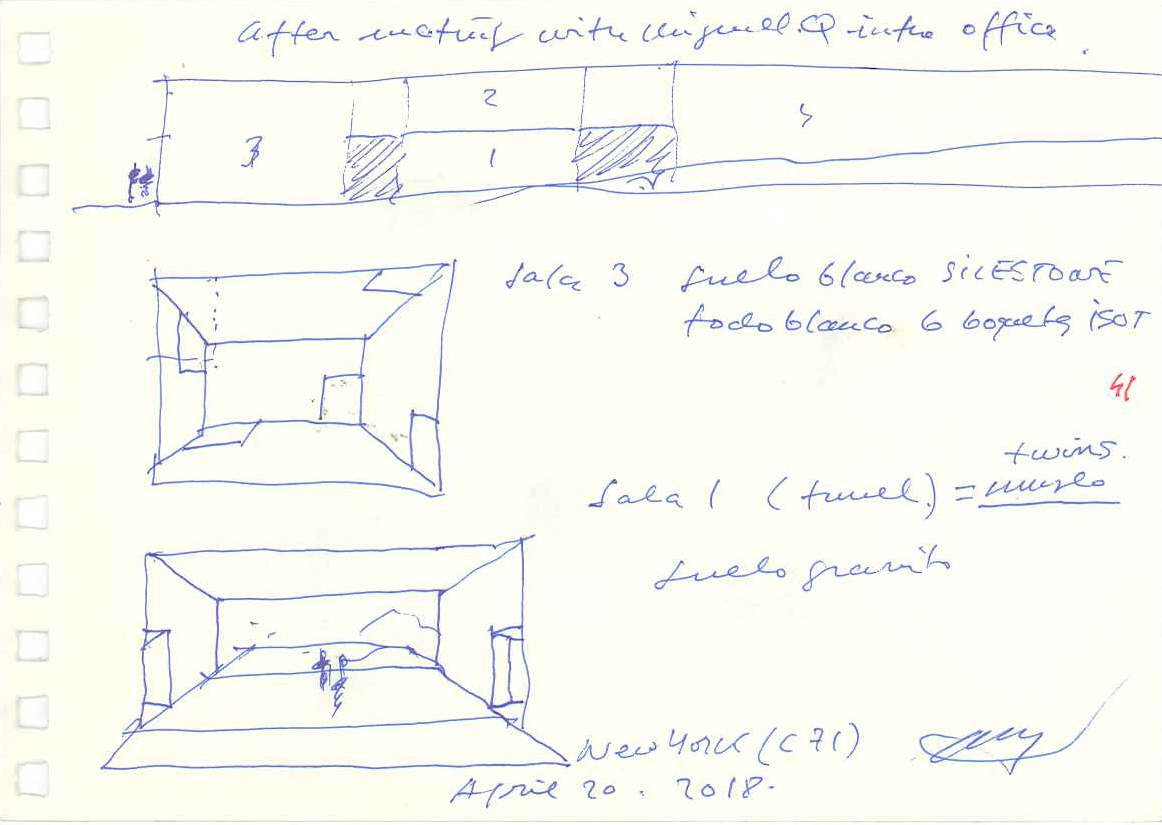 After meeting with Miguel.Q in the office.
2
3
1
Sala 3 suelo blanco SILESTONE
todo blanco 6 ISOT
41
twins.
Sala 1 (tunel.) =
suelo granito
New York (C71)
April 20. 2018.